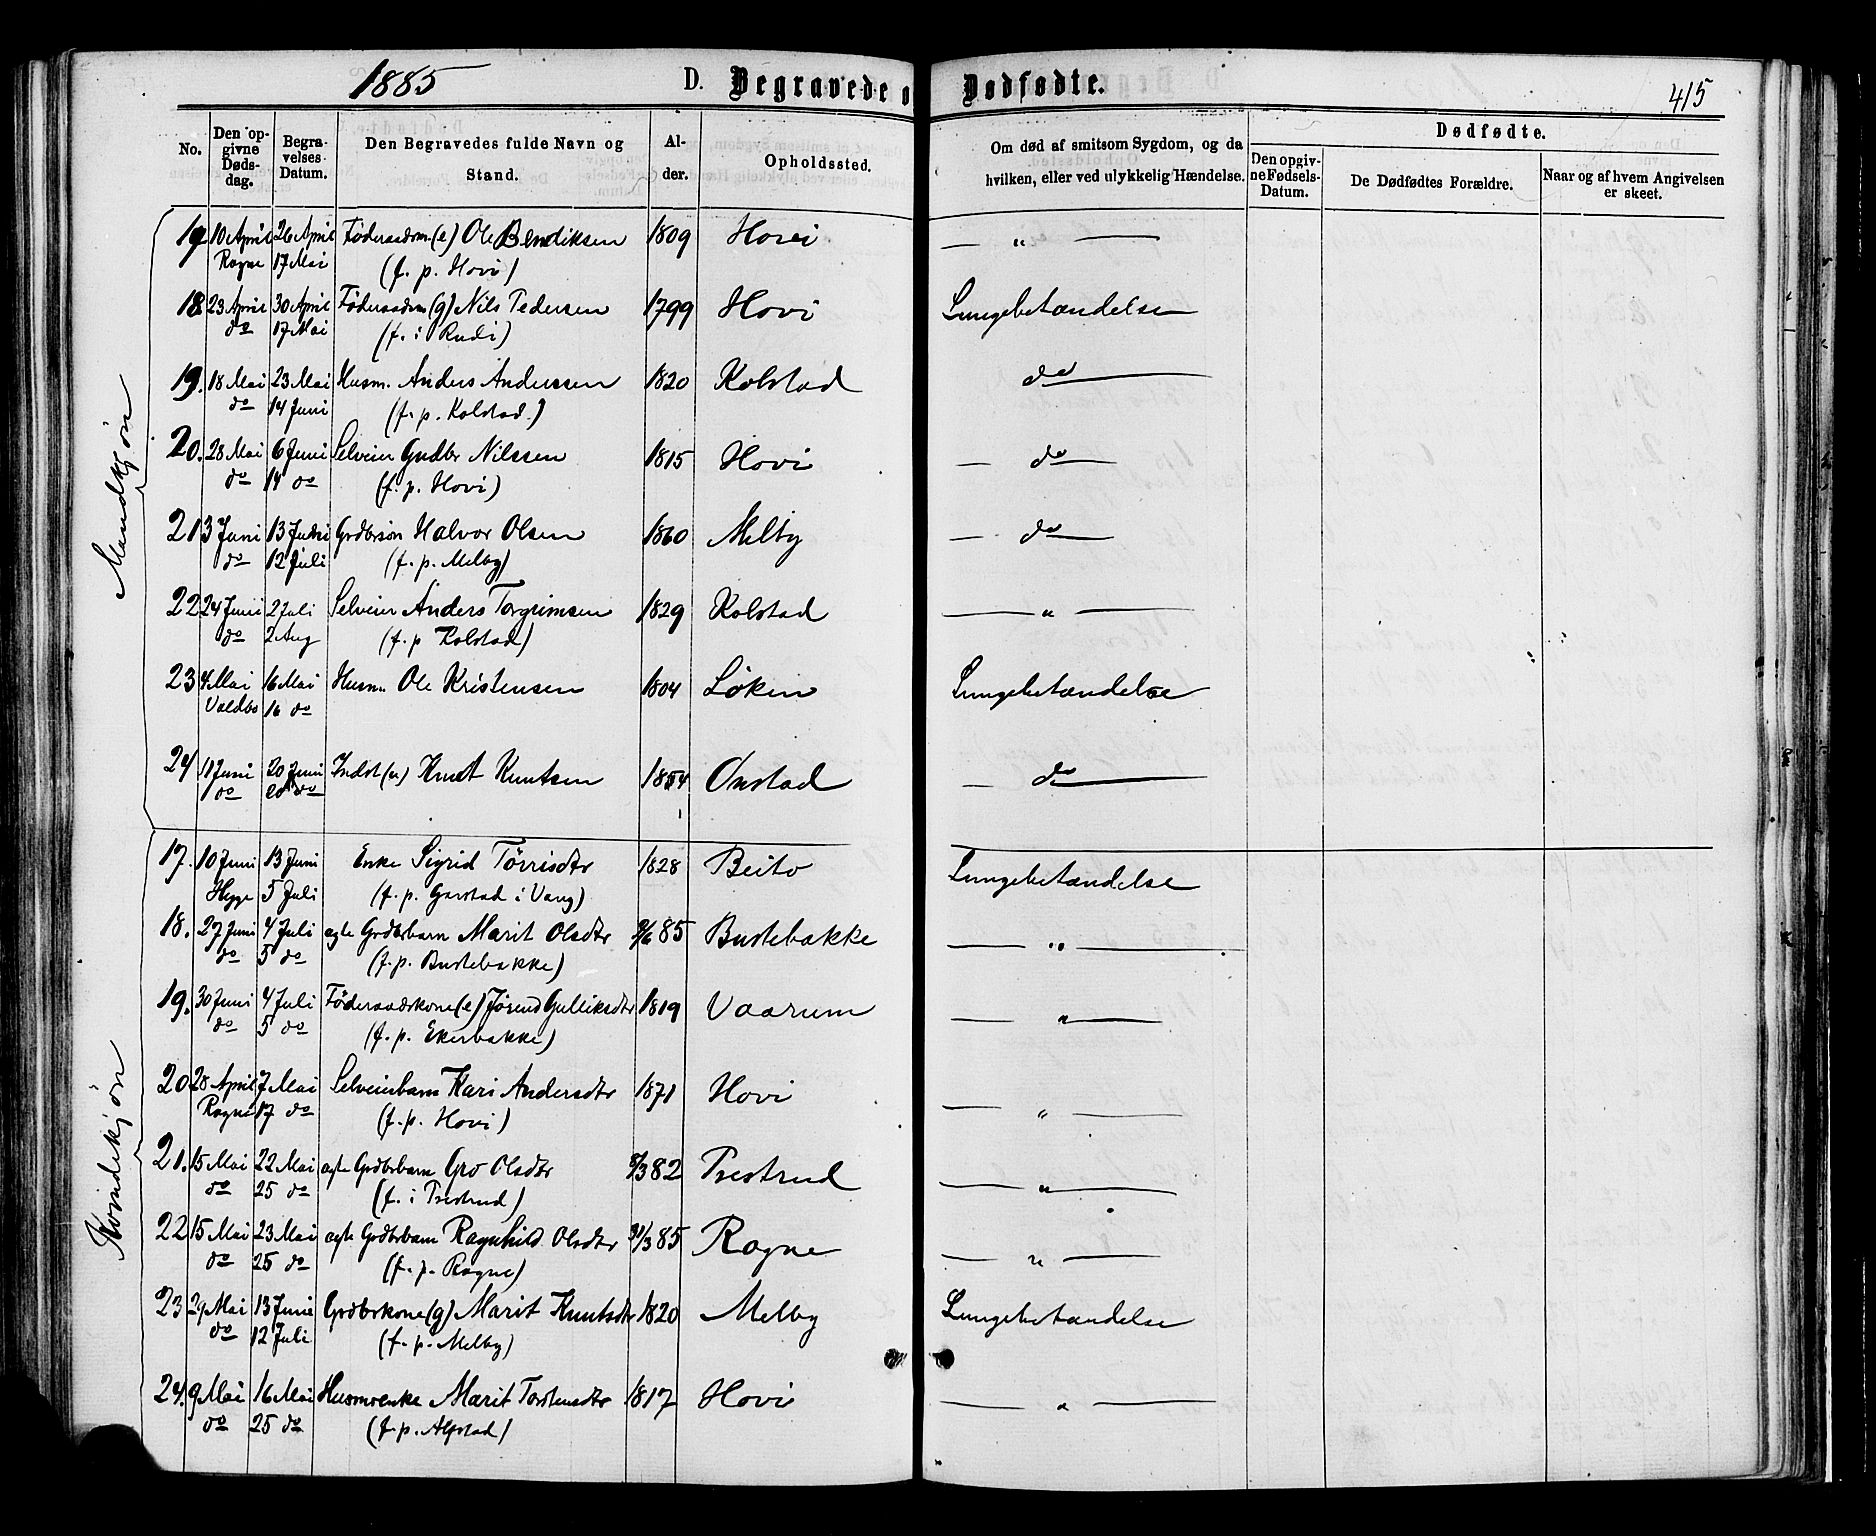 1885 D. Begravede o Dødfødte. 415
No. Den opgivne Dødsdag. Begravelses Datum. Den Begravedes fulde Navn og Stand. Alder. Opholdssted. Om død af smitsom Sygdom, og da hvilken, eller ved ulykkelig Hændelse. Dødfødte. Den opgivne Fødsels-Datum. De Dødfødtes Forældre. Naar og af hvem Angivelsen er skeet.
Mandkjøn
17 10 April 26 April Føderaadsm (e) Ole Bendiksen 1809 Hovi — " —
Rogne 17 Mai (f. p. Hovi)
18. 23 April 30 April Føderaadsm (g) Nils Pedersen 1799 Hovi Lungebetændelse
do 17 Mai (f. i Rudi)
19. 18 Mai 23 Mai Husm. Anders Anderssen 1820 Kolstad do —
do 14 Juni (f. p. Kolstad.)
20. 28 Mai 6 Juni Selveier Gudbr Nilssen 1815 Hovi — do —
do 14 do (f. p. Hovi)
21 3 Juni 13 Juni Grdbrsøn Halvor Olsen 1860 Melby — do —
do 12 Juli (f. p. Melby)
22 24 Juni 2 Juli Selveier Anders Torgrimsen 1829 Kolstad — " —
do 2 Aug (f. p Kolstad)
23 4 Mai 16 Mai Husm. Ole Kristensen 1804 Løkin Lungebetændelse
Valdbo 16 do
24 11 Juni 20 Juni Indst (u) Knut Knutsen 1854 Onstad — do —
do 20 do
Kvindekjøn
17. 10 Juni 13 Juni Enke Sigrid Tørrisdtr 1828 Beito Lungebetændelse
Hegge 5 Juli (f. p. Garstad i Vang)
18. 27 Juni 4 Juli ægte Grdbrbarn Marit Olsdtr 2/6 85 Bustebakke — " —
do 5 do (f. p. Bustebakke)
19. 30 Juni 4 Juli Føderaadskone (e) Jørend Gulliksdtr 1819 Vaarum — " —
do 5 do (f. p. Ekerbakke)
20 28 April 7 Mai Selveierbarn Kari Andersdtr 1871 Hovi — " —
Rogne 17 do (f. p. Hovi)
21. 15 Mai 22 Mai ægte Grdbrbarn Gro Olsdtr 8/3 82 Prestrud — " —
do 25 do (f. i Prestrud)
22 15 Mai 23 Mai ægte Grdbrbarn Ragnhild Olsdtr 31/3 85 Rogne — " —
do 25 do (f. p. Rogne)
23 29 Mai 13 Juni Grdbrkone (g) Marit Knutsdtr 1820 Melby Lungebetændelse
do 12 Juli (f. p. Melby)
24. 9 Mai 16 Mai Husmvenke Marit Torstensdtr 1817 Hovi — " —
do 25 do (f. p. Alfstad)